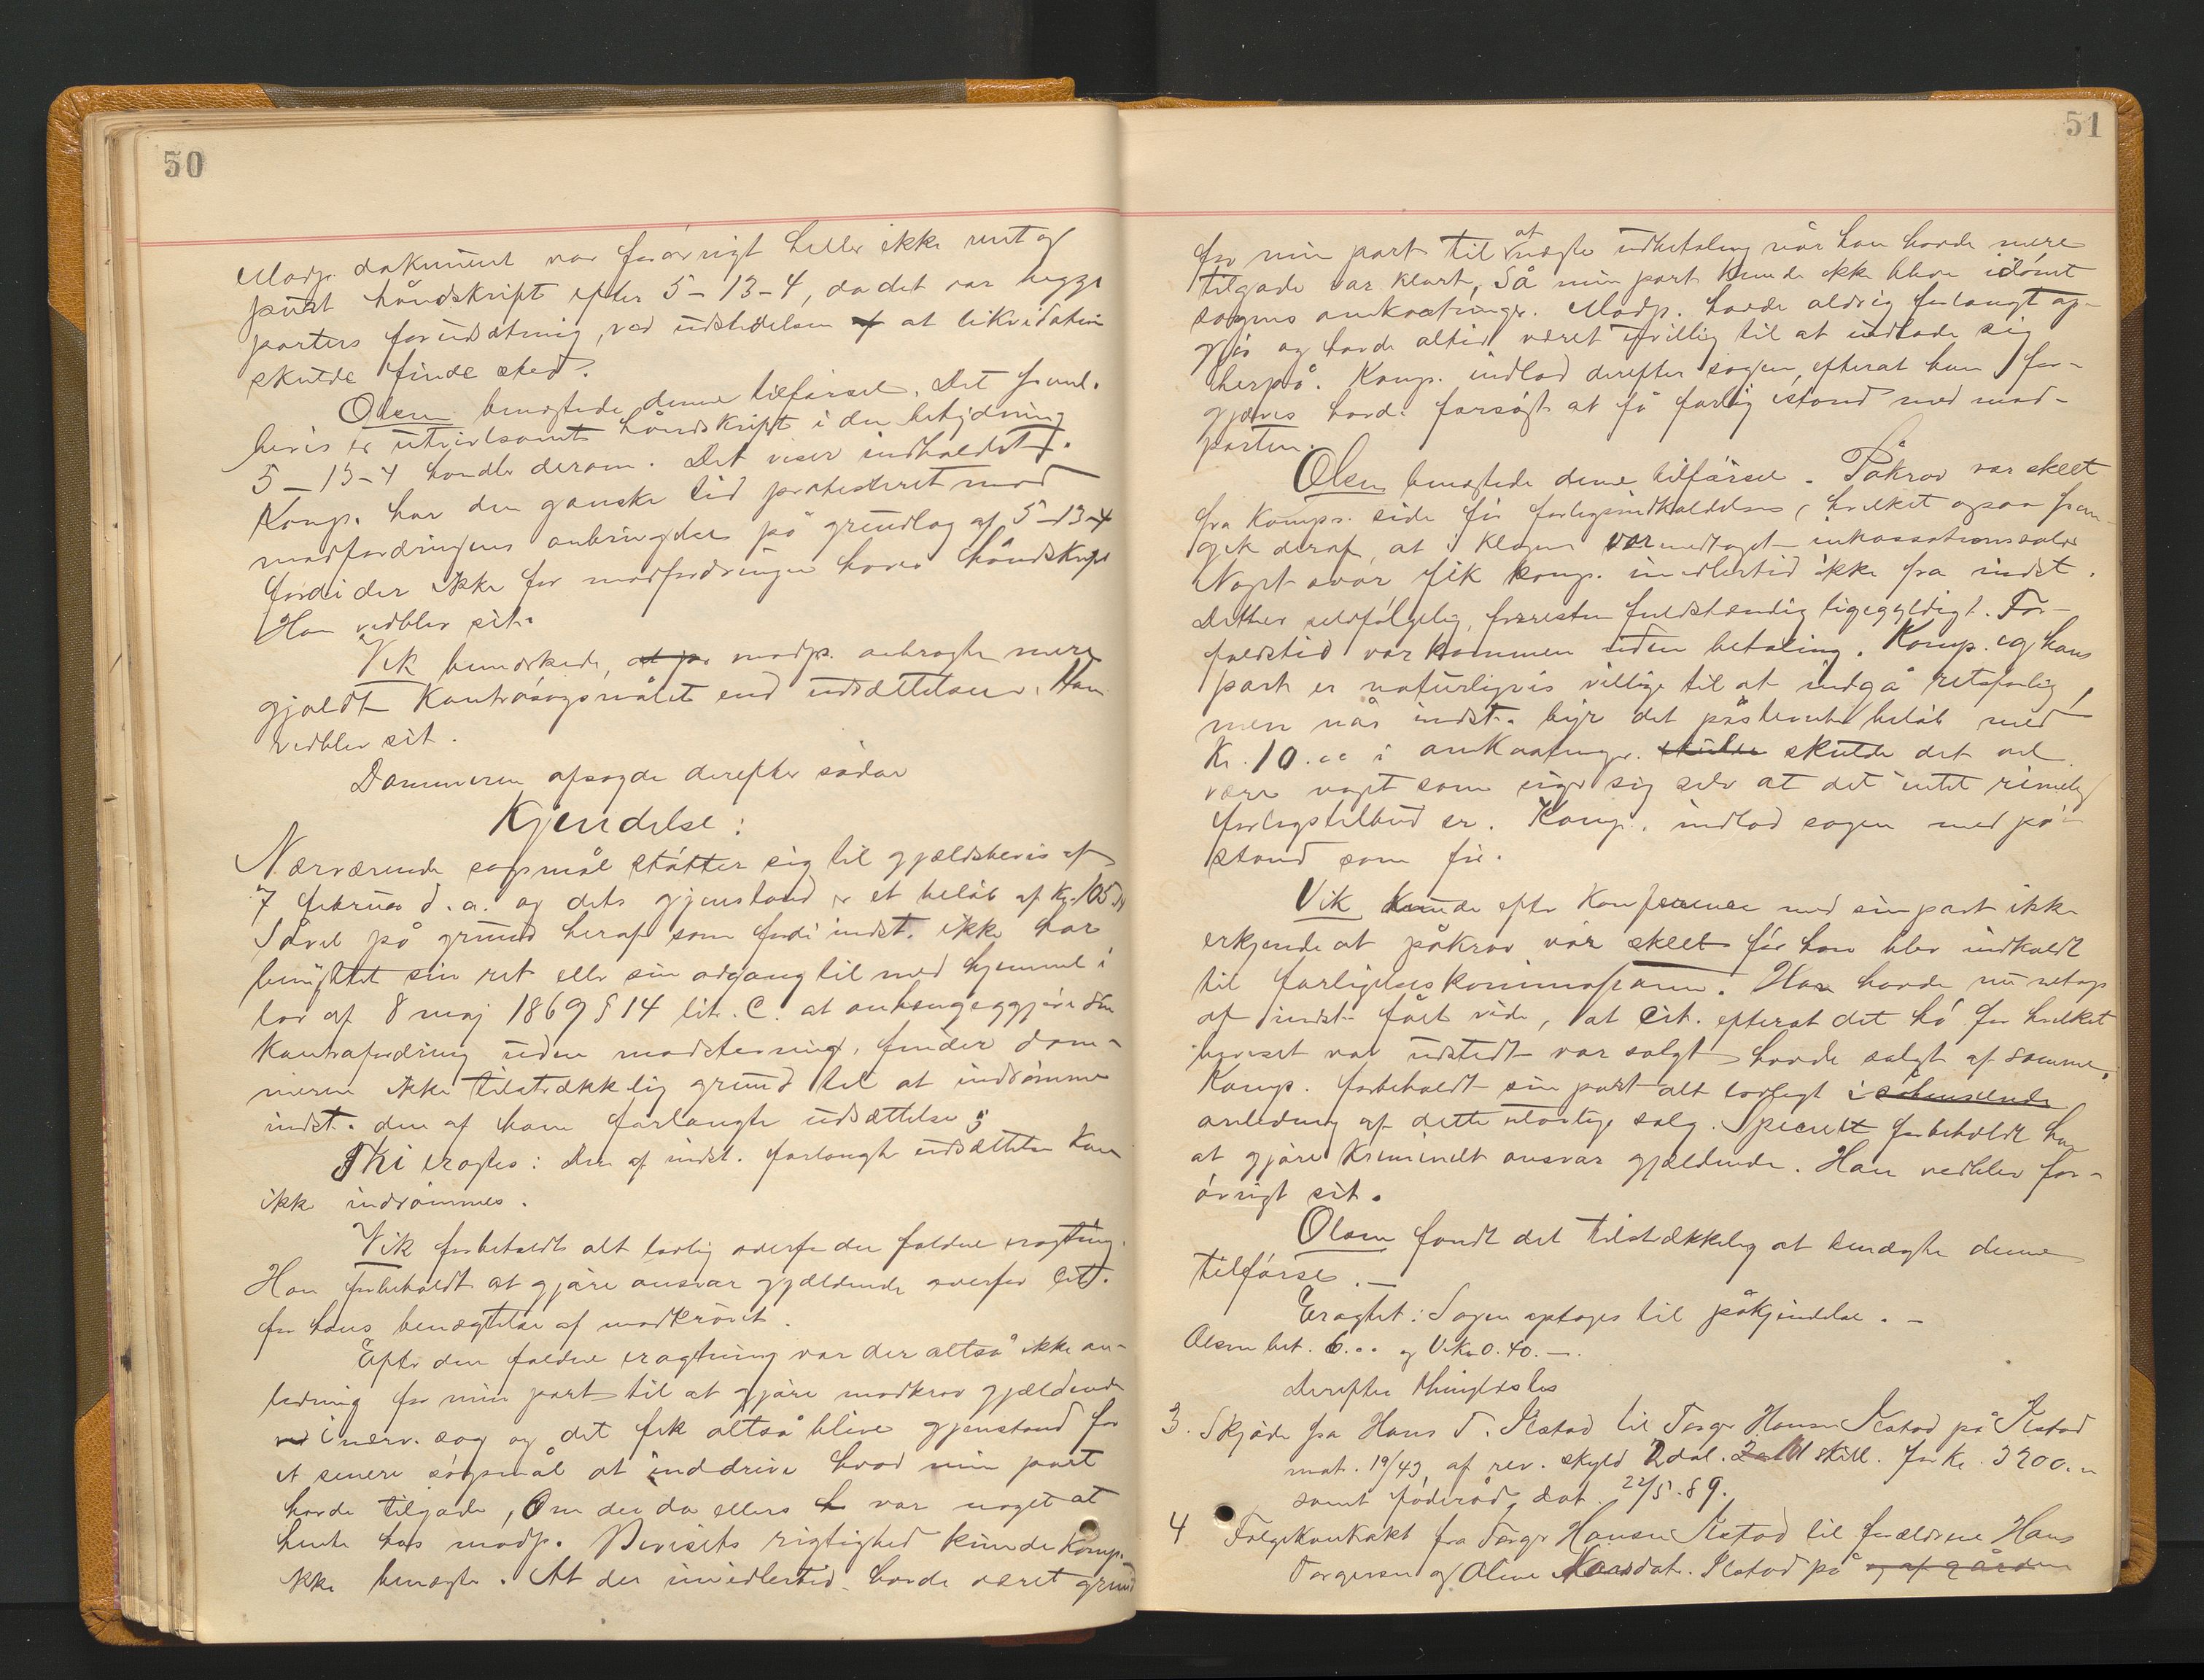 50
Modp. dokument var forøvrigt heller ikke rent og
purt håndskrift efter 5-13-4, da det var begge
parters forudsætning, ved udstedelsen at likvidation
skulde finde sted.
Olsen benægtede denne tilførsel. Det freml.
bevis er utvivlsomt håndskrift i den betydning
5-13-4 handler derom. Det viser indholdet.
Komp. har den ganske tid protesteret mod
modfordringens anbringelse på grundlag af 5-13-4
fordi der ikke for modfordringen haves håndskrift
Han vedblev sit.
Vik bemærkede, modp. anbragte mere
gjaldt kontrasøgsmålet end udsættelsen. Han
vedblev sit.
Dommeren afsagde derefter sådan
Kjendelse:
Nærværende søgsmål støtter sig til gjældsbevis af
7 februar d. a. og dets gjenstand er et beløb af Kr. 105
Såvel på grund heraf som fordi indst. ikke har
benyttet sin ret eller sin adgang til med hjemmel i
lov af 8 maj 1869 § 14 lit. C. at anhængiggjøre sin
kontrafordring uden modstevning, finder dom-
meren ikke tilstrækkelig grund til at indrømme
indst. den af ham forlangte udsættelse;
Thi eragtes: Den af indst. forlangte udsættelse kan
ikke indrømmes.
Vik forbeholdt alt lovlig overfor den faldne eragtning.
Han forbeholdt at gjøre ansvar gjældende overfor Cit.
for hans benægtelse af modkravet.
Efter den faldne eragtning var der altså ikke an-
ledning for min part til at gjøre modkrav gjældende
i nærv. sag og det fik altså blive gjenstand for
et senere søgsmål at inddrive hvad min part
havde tilgode, Om der da ellers var noget at
hente hos modp. Bevisets rigtighed kunde komp.
ikke benægte. At der imidlertid havde været grund
51
for min part til at nægte udbetaling når han havde mere
tilgode var klart, Så min part kunde ikke blive idømt
sagens omkostninger. Modp. havde aldrig forlangt op-
gjør og havde altid været uvillig til at indlade sig
herpå. Komp. indlod derefter sagen, efterat han for-
gjæves havde forsøgt at få forlig istand med mod-
parten.
Olsen benægtede denne tilførsel. Påkrav var skeet
fra komps. side før forligsindkaldelsen, hvilket ogsaa frem-
gik deraf, at i klagen var medtaget inkassationssalær
Noget svar fik komp. imidlertid ikke fra indst.
Dette er selvfølgelig, forresten fuldstændig ligegyldigt. For-
faldstid var kommen uden betaling. Komp. og hans
part er naturligvis villige til at indgå retsforlig,
men når indst. byr det påstevnte beløb med
Kr. 10.00 i omkostninger. skulde det vel
være noget som siger sig selv at det intet rimelig
forligstilbud er. Komp. indlod sagen med på-
stand som før.
Vik kunde efter konference med sin part ikke
erkjende at påkrav var skeet før han blev indkaldt
til forligelseskommissionen. Han havde nu netop
af indst. fået vide, at Cit. efterat det hø for hvilket
beviset var udstedt var solgt havde solgt af samme.
Komp. forbeholdt sin part alt lovligt i
anledning af dette ulovlige salg. Specielt forbeholdt han
at gjøre kriminelt ansvar gjældende. Han vedblev for-
øvrigt sit.
Olsen fandt det tilstrækkelig at benægte denne
tilførsel.—
Eragtet: Sagen optages til påkjendelse.—
Olsen bet. 6.00 og Vik 0.40.—.
Derefter thinglæstes
3. Skjøde fra Hans T. Restad til Torger Hansen Restad på Restad
mat. 19/43, af rev. skyld 2 dal. skill. for kr. 3200.00
samt føderåd, dat. 22/5.89.
4 Folgekontrakt fra Torger Hansen Restad til forældrene Hans
Torgersen og Oline Restad på og af gården